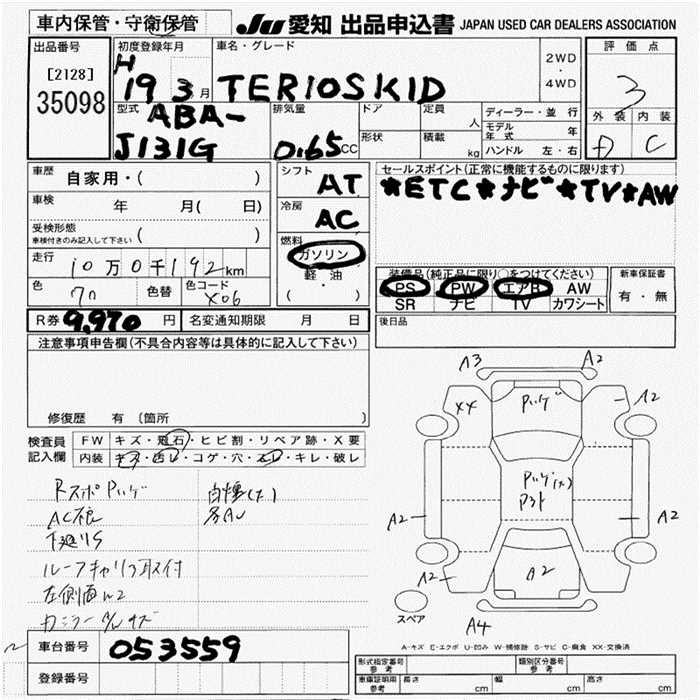 車内保管・守衛保管
JU 愛知 出品申込書 JAPAN USED CAR DEALERS ASSOCIATION
出品番号
[2128]
35098
初度登録年月
H
19 3 月
車名・グレード
TERIOSKID
2WD
・
4WD
評価点
3
外装 内装
C
型式
ABA-
J131G
排気量
0.65 CC
ドア
形状
定員
人
積載
kg
ディーラー・並行
モデル年式 年
ハンドル 左・右
車歴
自家用・( )
車検
年 月( 日)
受検形態
車検付きのみ記入して下さい ( )
走行
10万0千192km
色
70
色替
色コード
X06
R券 9,970 円
名変通知期限 月 日
シフト
AT
冷房
AC
燃料
ガソリン
軽・油
( ・ )
セールスポイント(正常に機能するものに限ります)
*ETC*ナビ*TV*AW
装備品(純正品に限り○をつけてください)
PS PW エアB AW
SR ナビ TV カワシート
新車保証書
有・無
後日品
注意事項申告欄(不具合内容等は具体的に記入して下さい)
修復歴 有 〔箇所 〕
検査員
記入欄
FW キズ・飛石・ヒビ割・リペア跡・X要
内装 キズ・汚レ・コゲ・穴・スレ・キレ・破レ
AC
ルーフキャリア取付
A3 A2
XX A2
A2 A2
A2 A2
A4
スペア
A-キズ E-エクボ U-凹み W-補修跡 S-サビ C-腐食 XX-交換済
車台番号 053559
登録番号
形式指定番号
参考
類別区分番号
参考
車庫証明用
参考
長さ cm 幅 cm 高さ cm